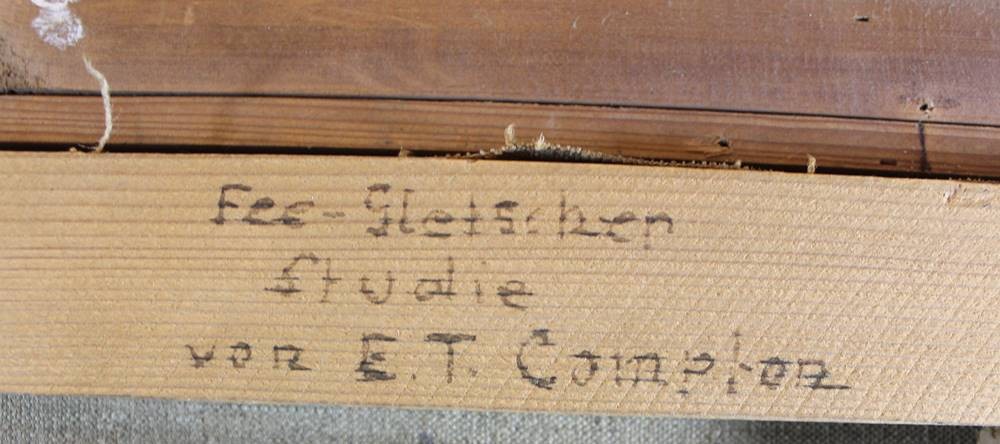 Fee-Gletscher
Studie
von E.T. Compton